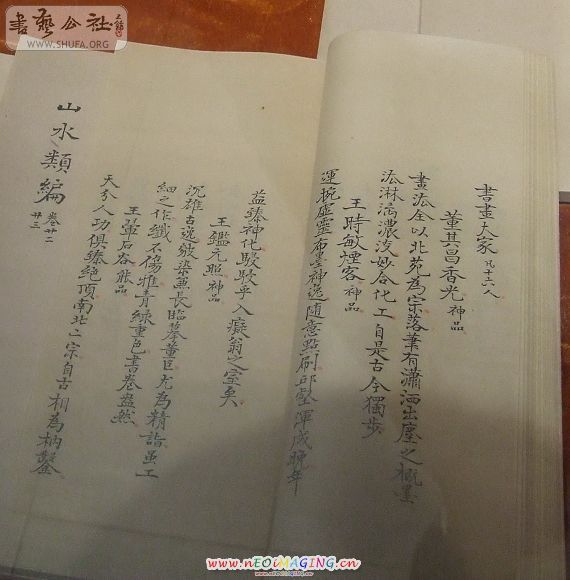 書藝公社
WWW.SHUFA.ORG
書畫大家 凡十六人
董其昌香光 神品
畫法全以北苑為宗落筆有瀟洒出塵之概墨
法淋漓濃淡妙合化工自是古今獨步
王時敏煙客 神品
運捥虛靈布墨神逸随意點刷邱壑渾成晚年
益臻神化駸駸乎入癡翁之室矣
王鑑元照 神品
沉雄古逸皴染兼長臨摹董巨尤為精詣虽工
細之作纖不傷雅青綠重色書卷盎然
王翬石谷 能品
天分人功俱臻絕頂南北二宗自古相為枘鑿
山水類編 卷廿二 廿三
www.nEOiMAGING.cn
www.neoimaging.cn